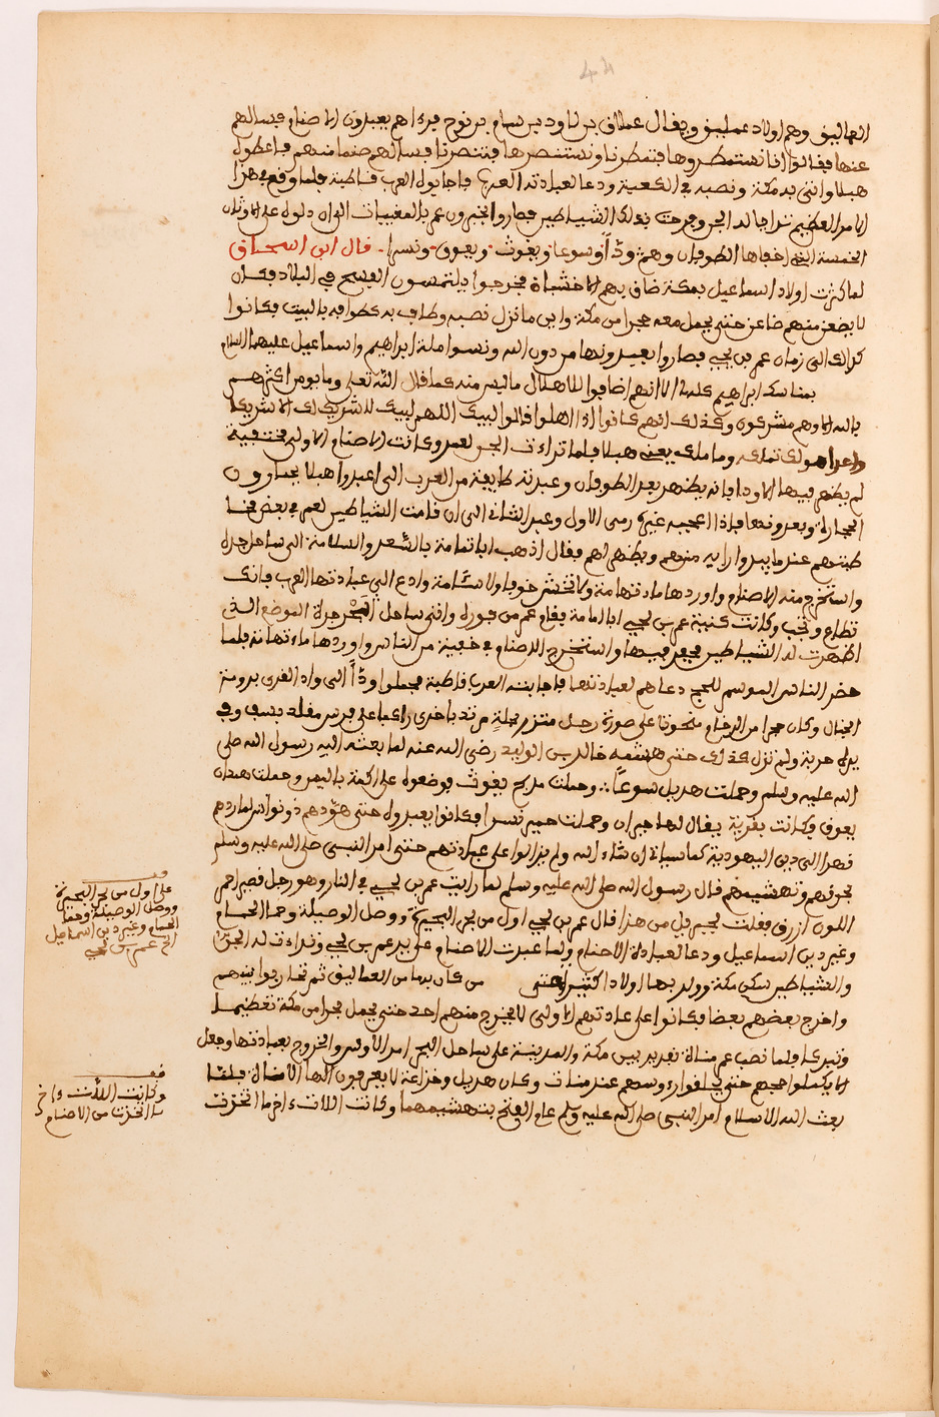 العماليق وهم اولاد عمليق ويقال عملاق بن لاود بن سام بن نوح فرءاهم يعبدون الاصنام فسالهم
عنها فقالوا انا نستمطروها فتمطرنا ونستنصرها فتنصرنا فسالهم صنما منهم فاعطوه
هبلا واتى به مكة ونصبه في الكعبة ودعا لعبادته العرب فاجابوه العرب قاطبة فلما وقع في هذا
الامر العظيم تراءا له الجن وفرحت بذلك الشياطين فصاروا يخبرون عمر بالمغيبات الى ان دلوه على الاوثان
الخمسة التي اخفاها الطوفان وهم ودًّا وسوعا ويغوث ويعوق ونسرا قال ابن اسحاق
لما كثرت اولاد اسماعيل بمكة ضاق بهم الاخشبان فخرجوا يلتمسون الفسح في البلاد فكان
لا يضعن منهم ضاعن حتى يحمل معه حجرا من مكة واين ما نزل نصبه وطاف به كطوافه بالبيت فكانوا
كذلك الى زمان عمر بن لحي فصاروا يعبدونها من دون الله ونسوا ملة ابراهيم واسماعيل عليهما السلام
بمناسك ابراهيم كلها الا انهم اضافوا للاهلال ما ليس منه كما قال الله تعلى وما يومن اكثرهم
بالله الا وهم مشركون وكذلك انهم كانوا اذا اهلوا قالوا لبيك اللهم لبيك لا شريك لك الا شريك
هو لك تملكه وما ملك يعني هبلا فلما تراءت الجن لعمر وكانت الاصنام الاولى مختفية
لم يظهر فيها الا ودا فانه يظهر بعد الطوفان وعبدته طايفة من العرب التي اعبدوا هبلا يختارون
الحجارة ويعبدونها فاذا اعجبه غيره رمى الاول وعبد الثاني الى ان قامت الشياطين لعمر في بعض مخا
طبتهم عندما يبدوا رايه منهم ويظهر لهم فقال اذهب ابا ثمامة بالسعد والسلامة الى ساحل جدة
واستخرج منه الاصنام واوردها مادتهامة ولا تخش خوفا ولا سئامة وادع الى عبادتها العرب فانك
تطاع وتجب وكانت كنية عمر بن لحي ابا ثمامة فقام عمر من فوره واتى ساحل البحر جدة الموضع الذي
اظهرت له الشياطين فحفر فيها واستخرج الاصنام في خفية من الناس واوردها ماء تهامة فلما
حضر الناس الموسم للحج دعاهم لعبادتها فاجابته العرب قاطبة فحملوا ودًّا الى واد القرى بدومة
الجندل وكان حجرا من الرخام منحوتا على صورة رجل متزر بحلة مرتد باخرى راكبا على فرس مقلد بسيف وفي
يده حربة ولم نزل كذلك حتى هشمه خالد بن الوليد رضي الله عنه لما بعثه اليه رسول الله صلى
الله عليه وسلم وحملت هديل سوعًا وحملت مدحج يغوث فوضعوه على اكمة باليمن وحملت همدان
يعوق وكانت بقرية يقال لها خيران وحملت حمير نسرا فكانوا يعبدوه حتى هودهم ذو نواس لما ردهم
قهرا الى دين اليهودية كما سياتي ان شاء الله ولم يزالوا على عبادتهم حتى امر النبي صلى الله عليه وسلم
بحرقهم وتهشيمهم قال رسول الله صلى الله عليه وسلم لما رايت عمر بن لحي في النار وهو رجل قصير احمر
اللون ازرق فقلت لجبريل من هذا قال عمر بن لحي اول من بحر البحيرة ووصل الوصيلة وحما الحسام
وغير دين اسماعيل ودعا لعبادة الاصنام ولما عبدت الاصنام على يد عمر بن لحي وتراءت له الجن
والشياطين سكن مكة وولد بها اولادا كثيرا حتى من كان بها من العماليق ثم تحاربوا بينهم
واخرج بعضهم بعضا فكانوا على عادتهم الاولى لا يخرج منهم احد حتى يحمل حجرا من مكة تعظيما
وتبركا فلما نصب عمر مناة بقديد بين مكة والمدينة على ساحل البحر امر الاوس والخزرج بعبادتها وجعل
لا يكملوا حجهم حتى يحلقوا رءوسهم عند منات وكان هديل وخزاعة لا يعرفون الها الا مناة فلما
بعث الله الاسلام امر النبي صلى الله عليه وسلم عام الفتح بتهشيمهما وكانت اللات ءاخر ما اتخذت
قف
على اول من بحر البحيرة
ووصل الوصيلة وحما
الحسام وغير دين اسماعيل
الخ عمر بن لحي
قف
وكانت اللات ءاخر
ما اتخذت من الاصنام